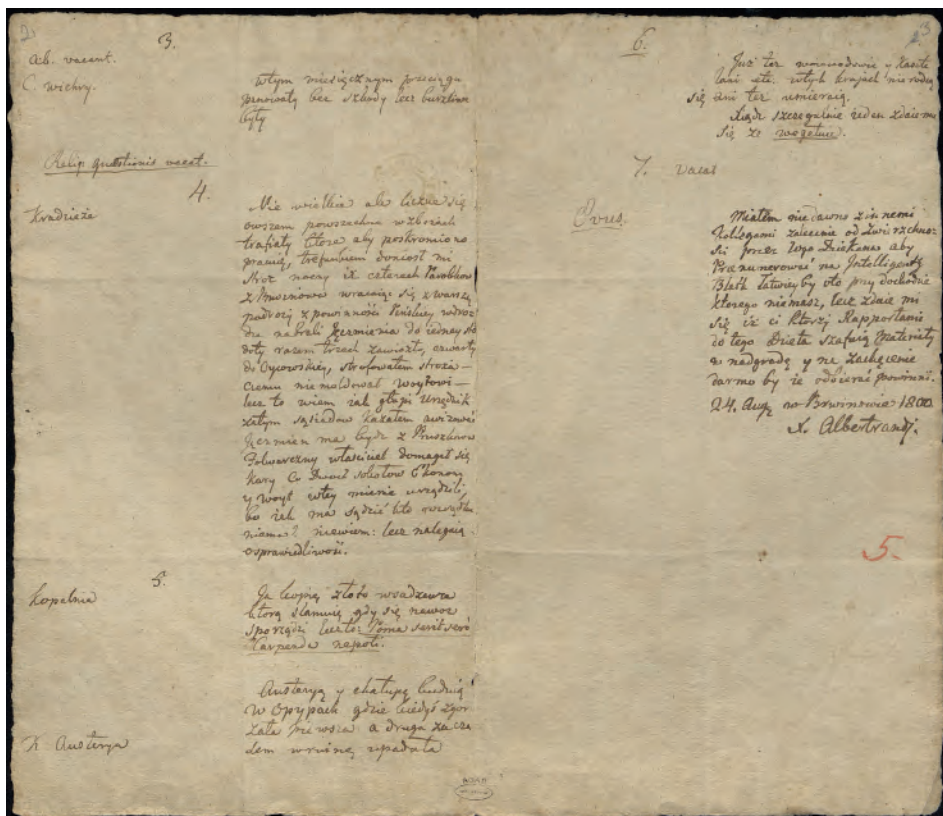 3.
ab. vacant.
C. wichry.
wtym miesięcznym przeciągu
panowały bez szkody lecz burzliwe
były
Reliq questionis vacat.
4.
Kradzieże
Nie wielkie ale liczne się
owszem powszechne w zbożach
trafiały które aby poskromiono
pracuię, trefunkiem doniosł mi
stroż nocny iż czterech Parobkow
z Pruszkowa wracaiąc się z warsz
podroży z powinności Pańskiey w drodze
nabrali Jęczmienia do iedney sto
doły razem trzech zawiozło, czwarty
do, strofowałem stroża —
Czemu nie meldował woytowi —
lecz to wiem iak głupi urzędnik
zatym sąsiadow kazałem awizować
Jęczmien ma bydz z Pruszkowa
Folwarczny właściciel domagał się
kary Co Dwoch Ekonom
y woyt w tey mierze urządzili,
bo iak ma sądzić kto
niema? niewiem: lecz nalegaią
o sprawiedliwość.
5.
kopalnia
Ja kopię złoto
ktorą sławnią gdy się nawoz
sporządzi lecz to: Poma
Carpenda nepoti.
K Austerya
Austeryą y chałupę buduią
w Opypach gdzie kiedyś zgor
zała pierwsza a druga za cza
sem w ruinę upadała
6.
3
Już też woiewodowie y Kaszte
lani etc. w tych kraiach nie rodzą
się ani też umieraią.
Xiądz szczegulnie ieden zdaie mi
się że.
7. vacat
Miałem niedawno z innemi
kollegami zalecenie od zwierzchno:
ści przez tego Dziekana aby
Prænumerować na Jntelligentz
Blatt łatwiey by oto przy dochodzie
ktorego niemasz, lecz zdaie mi
się iż ci ktorzy Rapportami
do tego Dzieła szafuią Materiały
w nadgrodę y na zachęcenie
darmo by ie odbierać powinni.
24. Aug w Brwinowie 1800
X. Albertrandj.
5.